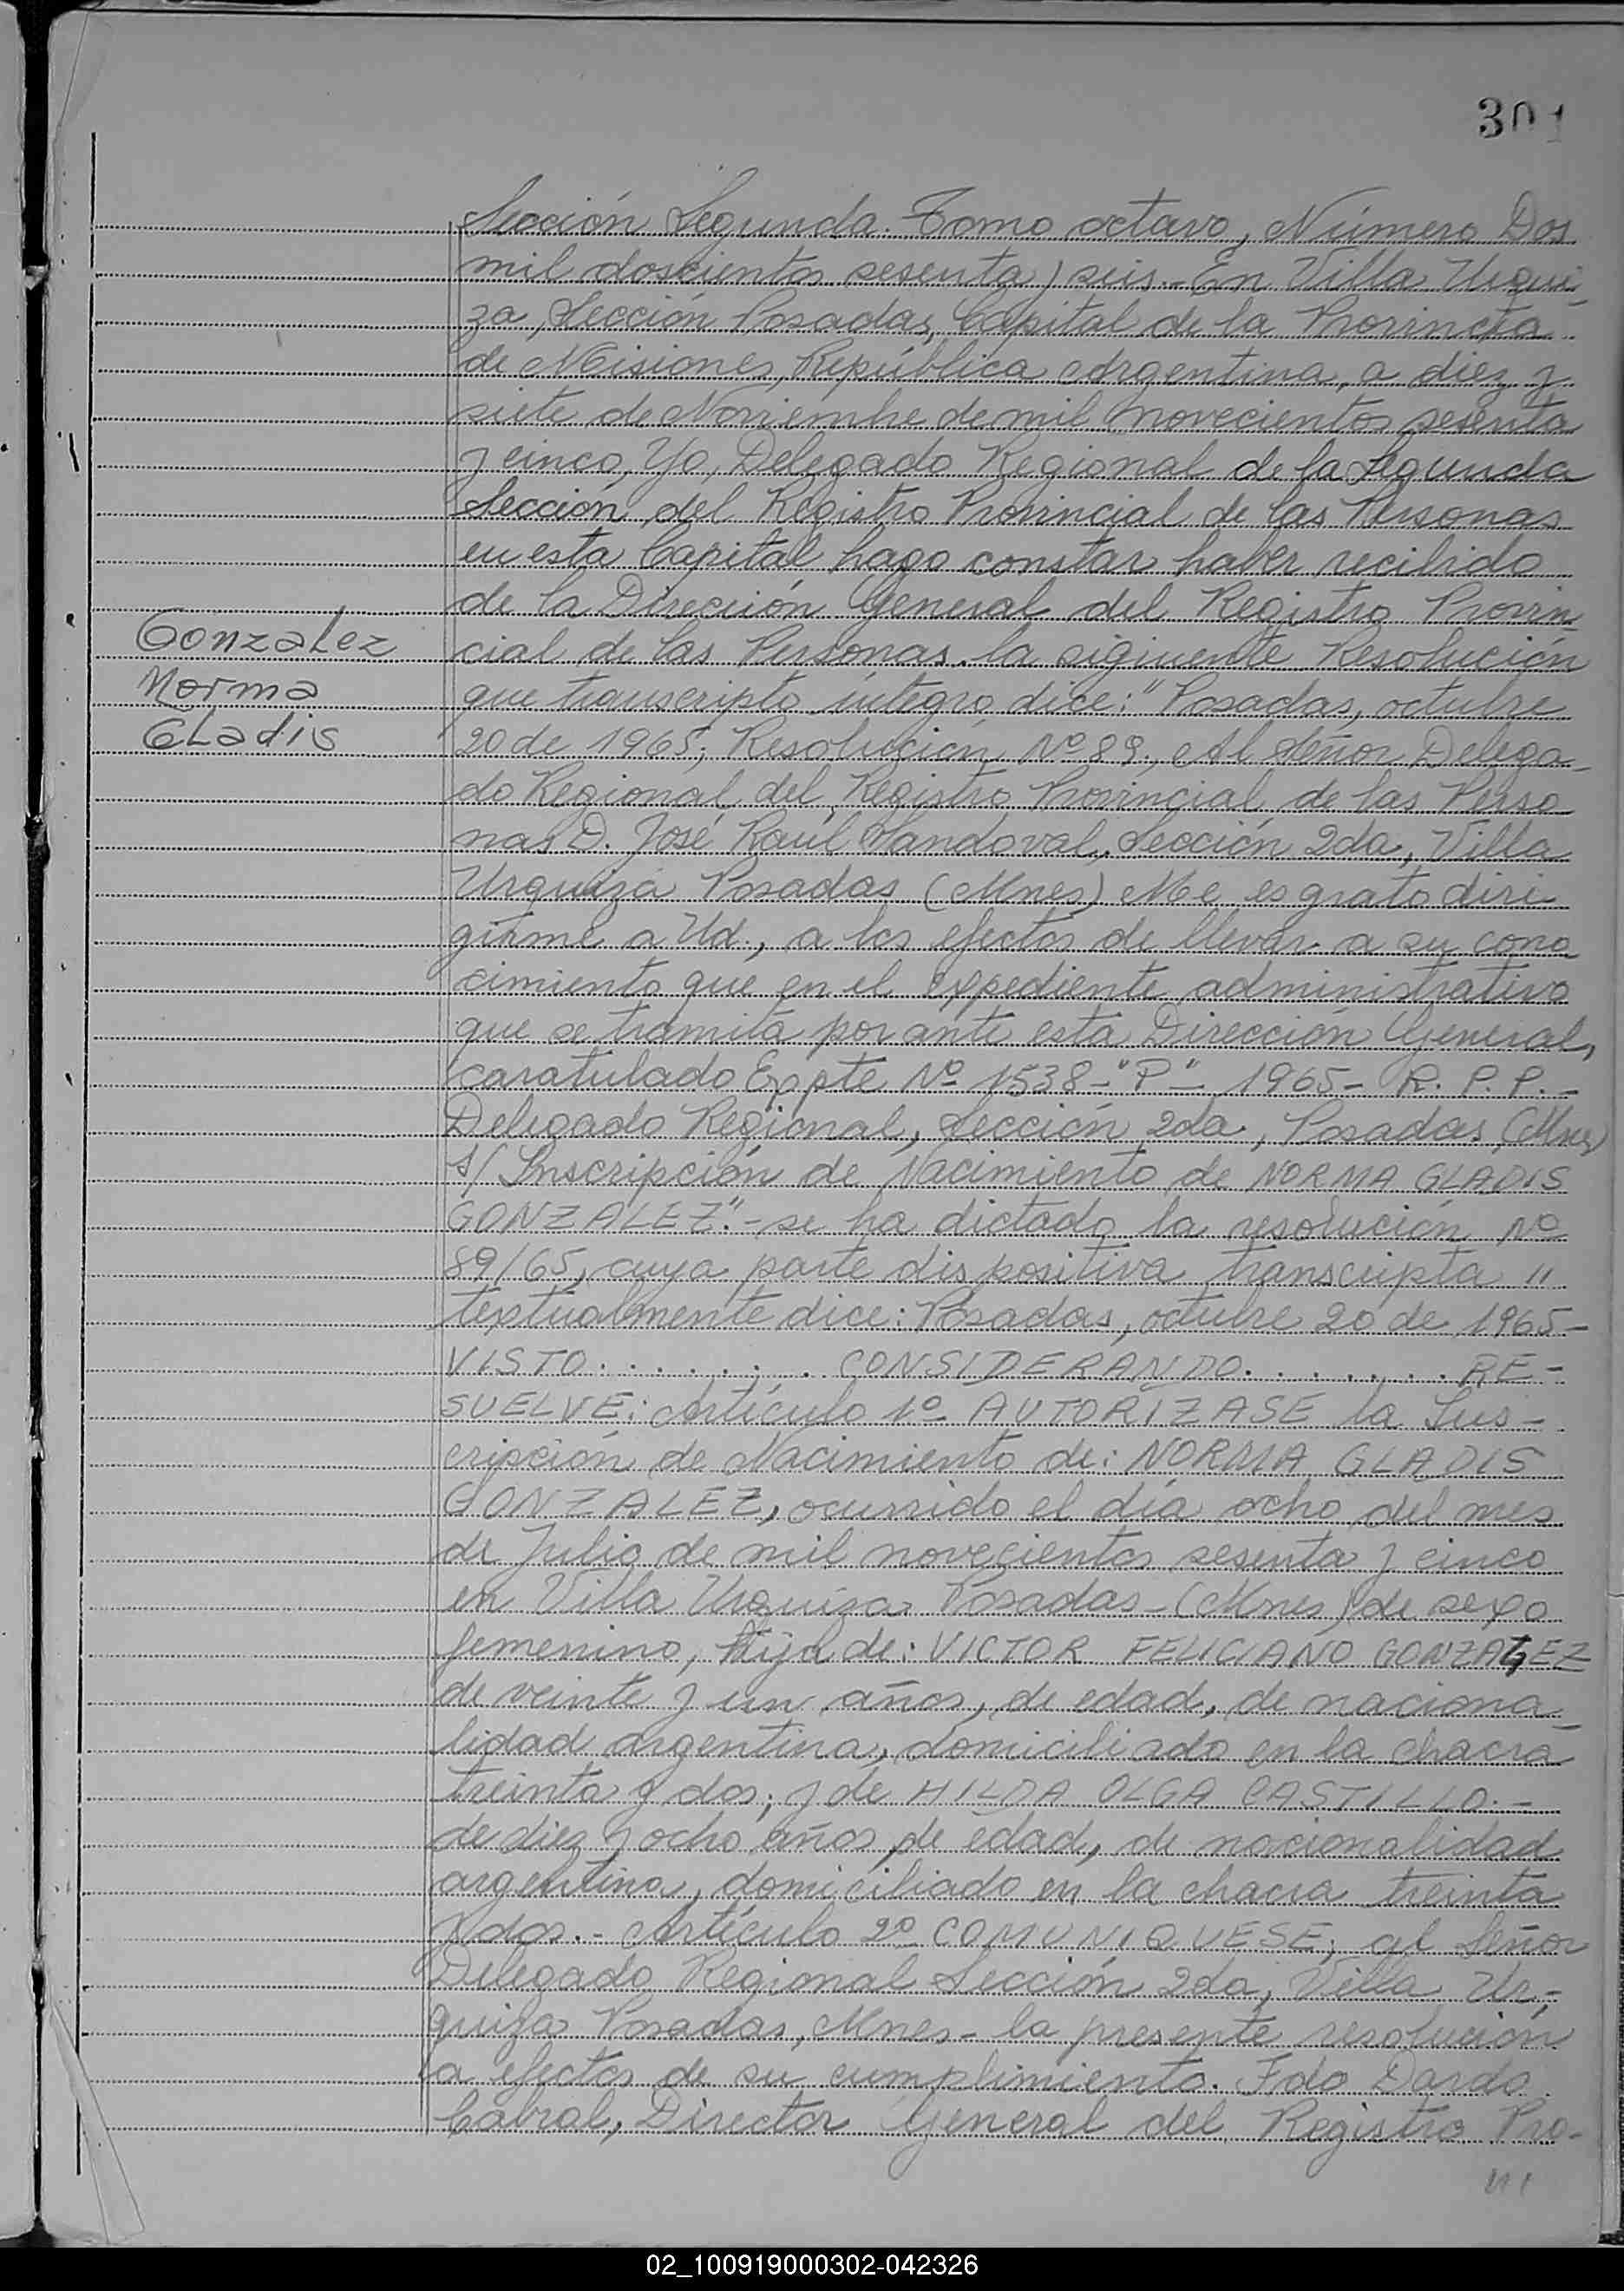 301
Sección Segunda. Tomo octavo, Número Dos
mil doscientos sesenta y seis.- En Villa Urqui-
za, Sección Posadas, Capital de la Provincia
de Misiones, República Argentina, a diez y
siete de Noviembre de mil novecientos sesenta
y cinco, Yo, Delegado Regional de la Segunda
Sección del Registro Provincial de las Personas
en esta Capital hago constar haber recibido
de la Dirección General del Registro Provin-
Gonzalez
Norma
Gladis
cial de las Personas la siguiente Resolución
que transcripto íntegro dice: "Posadas, octubre
20 de 1965; Resolución Nº 89., Al Señor Delega-
do Regional del Registro Provincial de las Perso
nas D. José Raúl Sandoval, Sección 2da, Villa
Urquiza Posadas (Mnes) Me es grato diri
girme a Ud., a los efectos de llevar a su cono
cimiento que en el expediente administrativo
que se tramita por ante esta Dirección General,
caratulado Expte Nº 1538-"P"- 1965- R. P. P.-
Delegado Regional, Sección 2da, Posadas, (Mnes)
s/ Inscripción de Nacimiento de NORMA GLADIS
GONZALEZ".- se ha dictado la resolución Nº
89/65, cuya parte dispositiva transcripta "
textualmente dice: Posadas, octubre 20 de 1965-
VISTO......... CONSIDERANDO........ RE-
SUELVE: Artículo 1º AUTORIZASE la Ins-
cripción de Nacimiento de: NORMA GLADIS
GONZALEZ, ocurrido el día ocho del mes
de Julio de mil novecientos sesenta y cinco
en Villa Urquiza Posadas-(Mnes) de sexo
femenino, Hija de: VICTOR FELICIANO GONZALEZ
de veinte y un años, de edad, de naciona-
lidad argentina, domiciliado en la chacra
treinta y dos; y de HILDA OLGA CASTILLO.-
de diez y ocho años de edad, de nacionalidad
argentina, domiciliado en la chacra treinta
y dos.- Artículo 2º COMUNIQUESE; al Señor
Delegado Regional Sección 2da, Villa Ur-
quiza Posadas, Mnes- la presente resolución
a efectos de su cumplimiento. Fdo Dardo
Cabral, Director General del Registro Pro-
02_100919000302-042326